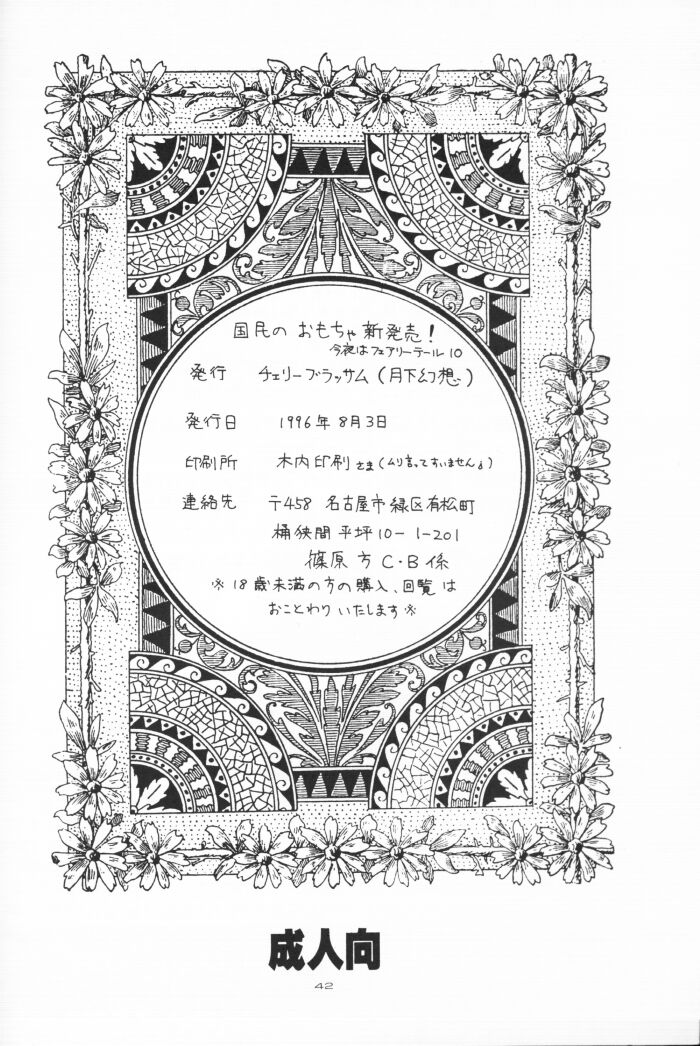 国民の おもちゃ 新発売!
今夜はフェアリーテール 10
発行 チェリーブラッサム (月下幻想)
発行日 1996年 8月3日
印刷所 木内印刷 さま (ムリ言ってすいません)
連絡先 〒458 名古屋市緑区有松町
桶狭間 平坪10-1-201
篠原方 C・B係
※ 18歳未満の方の購入、回覧は
おことわり いたします ※
成人向
42